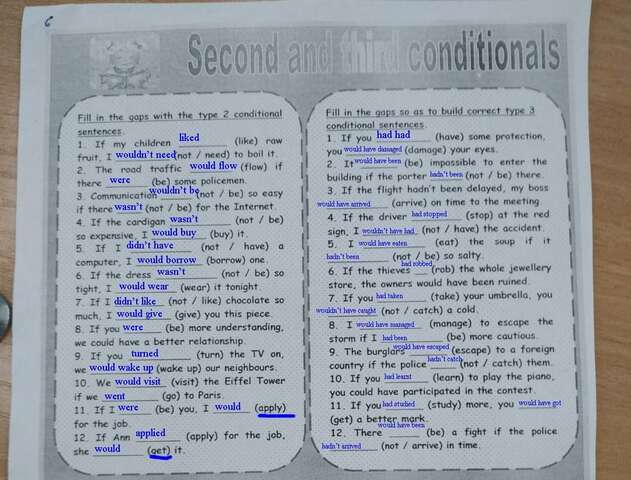 6
Second and third conditionals
Fill in the gaps with the type 2 conditional
sentences.
1. If my children liked (like) raw
fruit, I wouldn't need (not / need) to boil it.
2. The road traffic would flow (flow) if
there were (be) some policemen.
3. Communication wouldn't be (not / be) so easy
if there wasn't (not / be) for the Internet.
4. If the cardigan wasn't (not / be)
so expensive, I would buy (buy) it.
5. If I didn't have (not / have) a
computer, I would borrow (borrow) one.
6. If the dress wasn't (not / be) so
tight, I would wear (wear) it tonight.
7. If I didn't like (not / like) chocolate so
much, I would give (give) you this piece.
8. If you were (be) more understanding,
we could have a better relationship.
9. If you turned (turn) the TV on,
we would wake up (wake up) our neighbours.
10. We would visit (visit) the Eiffel Tower
if we went (go) to Paris.
11. If I were (be) you, I would (apply)
for the job.
12. If Ann applied (apply) for the job,
she would (get) it.
Fill in the gaps so as to build correct type 3
conditional sentences.
1. If you had had (have) some protection,
you would have damaged (damage) your eyes.
2. It would have been (be) impossible to enter the
building if the porter hadn't been (not / be) there.
3. If the flight hadn't been delayed, my boss
would have arrived (arrive) on time to the meeting.
4. If the driver had stopped (stop) at the red
sign, I wouldn't have had (not / have) the accident.
5. I would have eaten (eat) the soup if it
hadn't been (not / be) so salty.
6. If the thieves had robbed (rob) the whole jewellery
store, the owners would have been ruined.
7. If you had taken (take) your umbrella, you
wouldn't have caught (not / catch) a cold.
8. I would have managed (manage) to escape the
storm if I had been (be) more cautious.
9. The burglars would have escaped (escape) to a foreign
country if the police hadn't catch (not / catch) them.
10. If you had learnt (learn) to play the piano,
you could have participated in the contest.
11. If you had studied (study) more, you would have got
(get) a better mark.
12. There would have been (be) a fight if the police
hadn't arrived (not / arrive) in time.